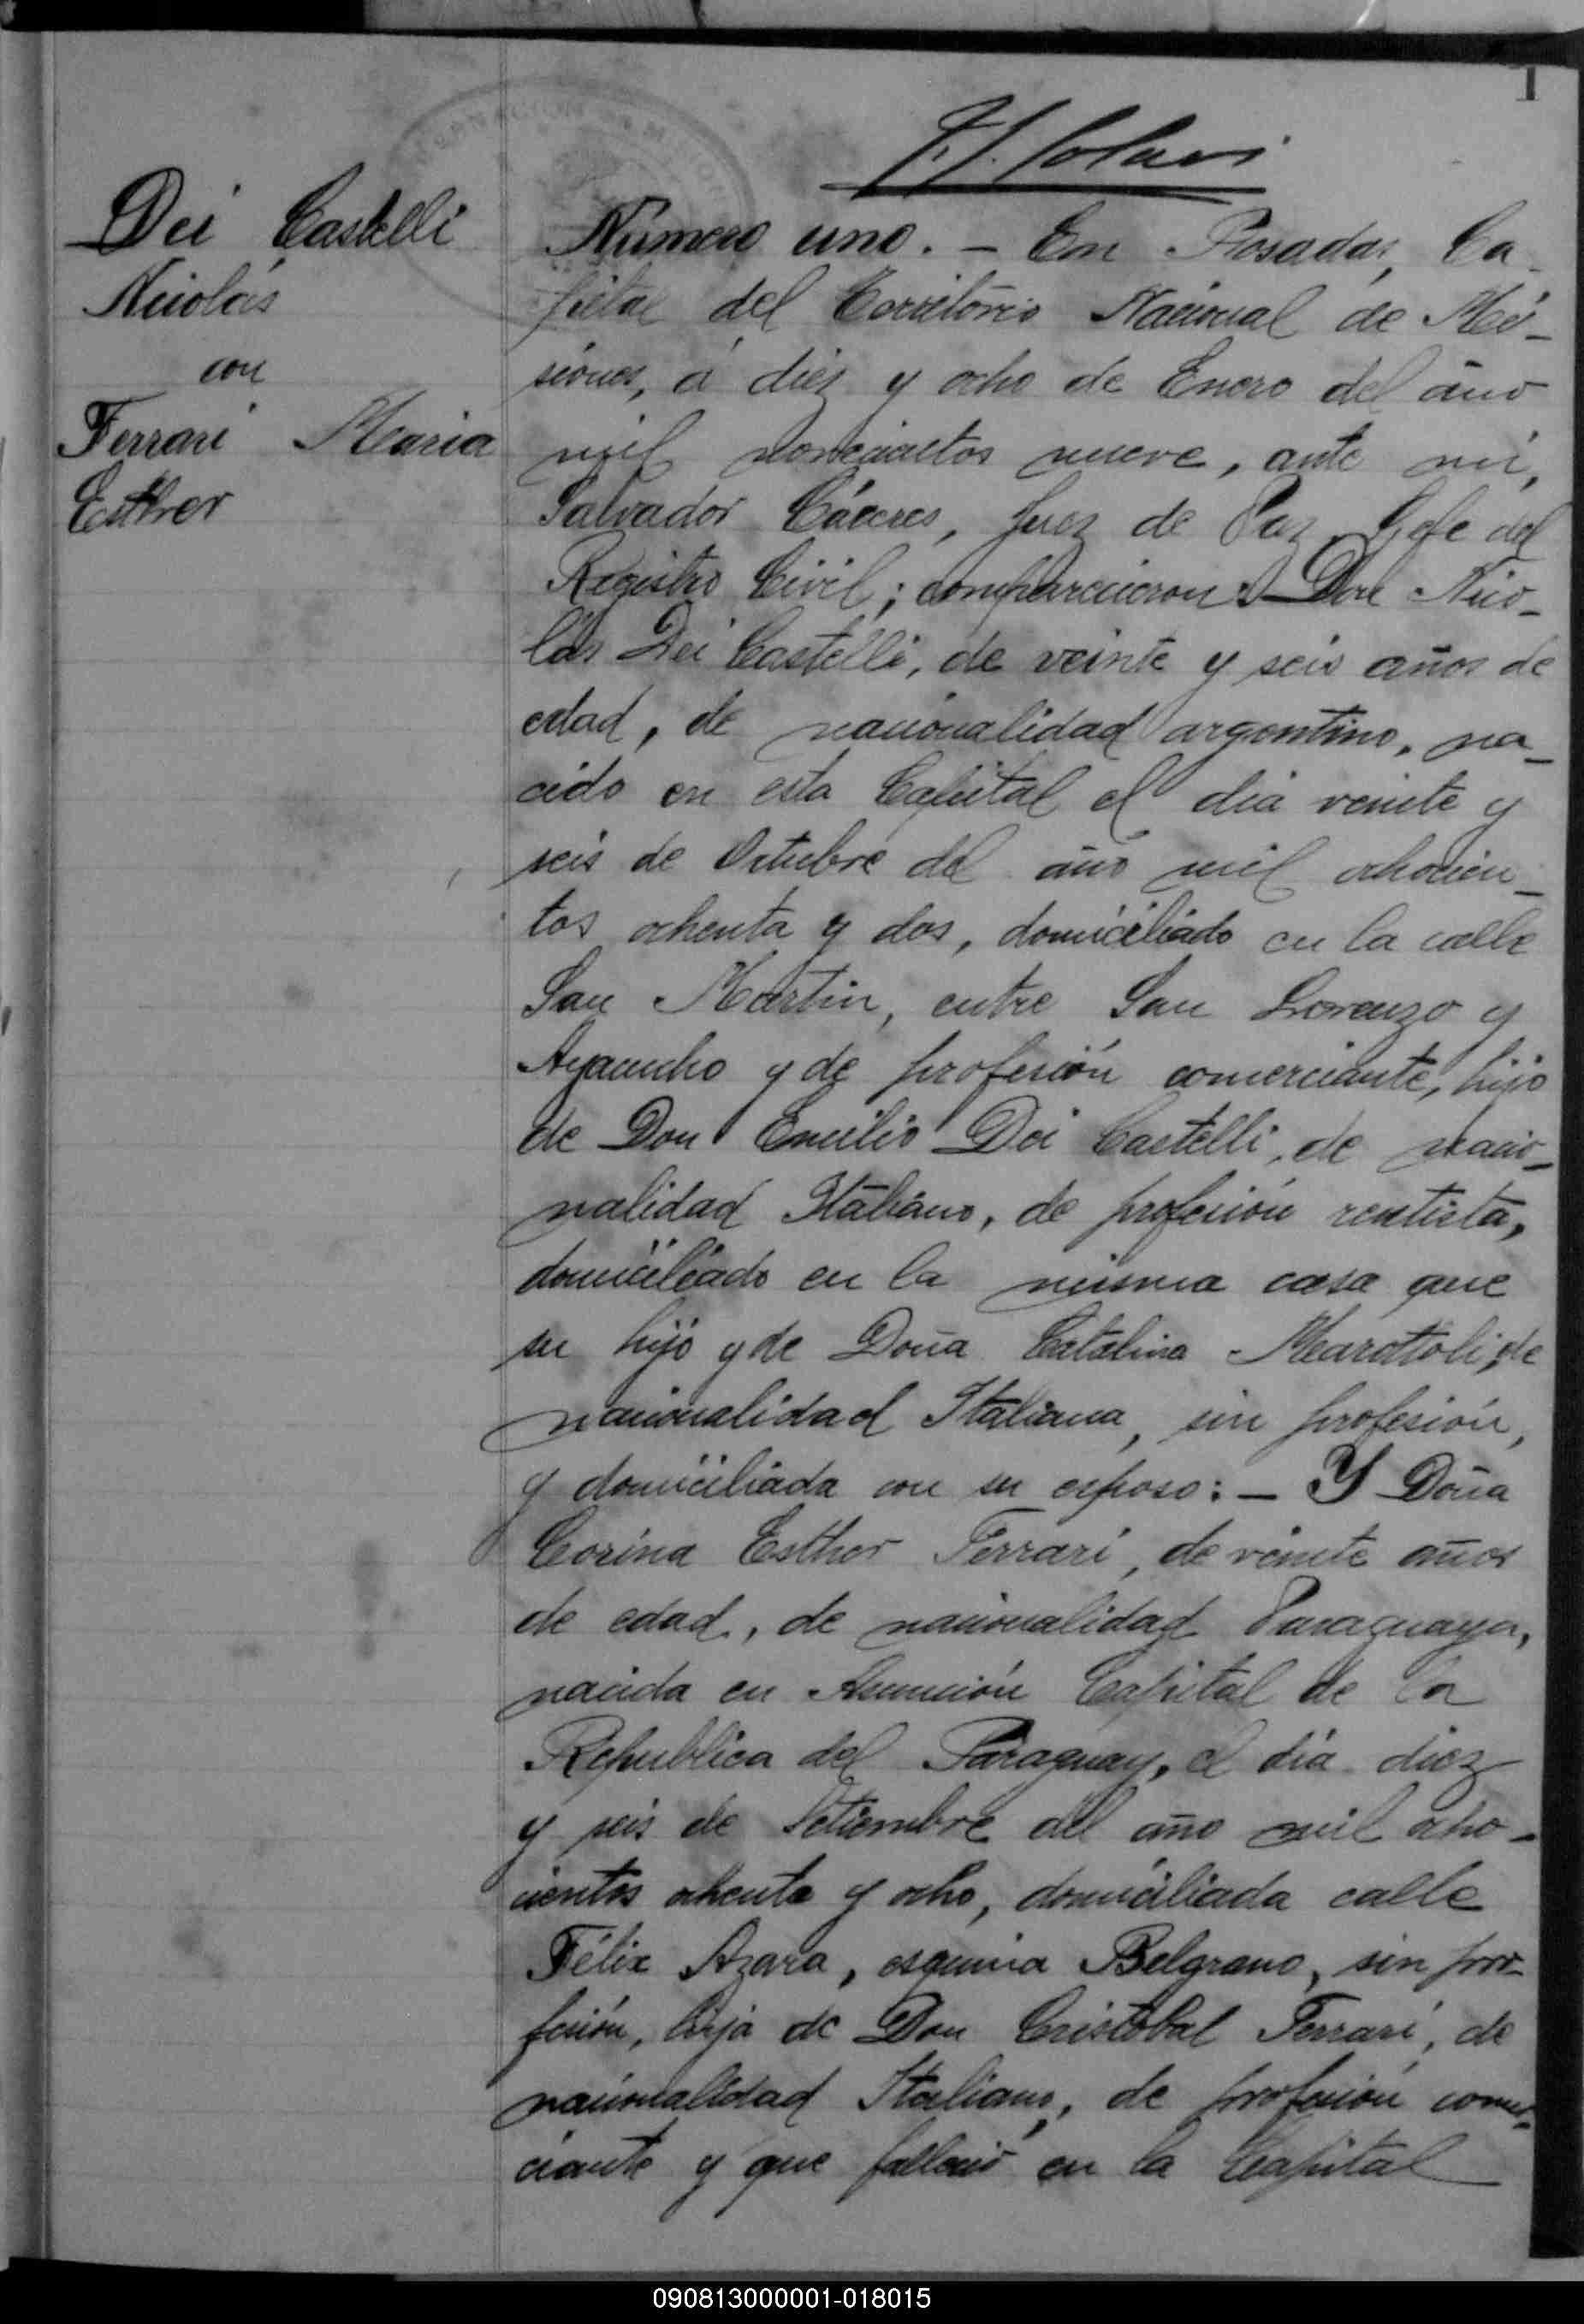 1
Dei Castelli
Nicolás
con
Ferrari Maria
Esther
Número uno. – En Posadas, Ca-
pital del Territorio Nacional de Mi-
siones, á diez y ocho de Enero del año
mil novecientos nueve, ante mí,
Salvador Cáceres, Juez de Paz, Gefe del
Registro Civil; comparecieron: Don Nico-
lás Dei Castelli, de veinte y seis años de
edad, de nacionalidad argentino, na-
cido en esta Capital el dia veinte y
seis de Octubre del año mil ochocien-
tos ochenta y dos, domiciliado en la calle
San Martin, entre San Lorenzo y
Ayacucho y de profesión comerciante, hijo
de Don Emilio Dei Castelli, de nacio-
nalidad Italiano, de profesión rentista,
domiciliado en la misma casa que
su hijo y de Doña Catalina de
nacionalidad Italiana, sin profesión,
y domiciliada con su esposo: – Y Doña
Corina Esther Ferrari, de veinte años
de edad, de nacionalidad Paraguaya,
nacida en Asunción Capital de la
Republica del Paraguay, el dia diez
y seis de Setiembre del año mil ocho-
cientos ochenta y ocho, domiciliada calle
Félix Azara, esquina Belgrano, sin pro-
fesión, hija de Don Cristóbal Ferrari, de
nacionalidad Italiano, de profesión comer-
ciante y que falleció en la Capital
090813000001-018015